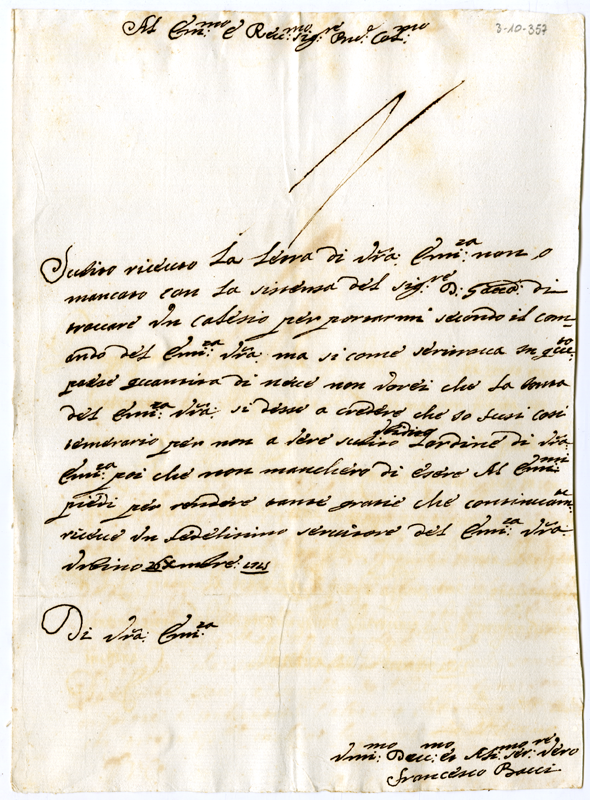 3-10-357
Al Emi:mo e Reve:mo Sig:re Prō Col:mo
Subito riceuto La Letra di Vr̃a: Emi:za non o
mancato con La sistensa del Sig:re D: di
trovare Vn calesio per portarmi secondo il com=
ando del Emi:za Vr̃a: ma si come seritrova in que:to
paese quantita di neve non Vorei che La bonta
del Emi:za Vr̃a: si desse a credere che io fusi cosi
temerario per non a vere subito Lordine di Vr̃a
Emi:za poi che non manchero di esere Al Emi:mi
piedi per rendere tante gratie che continuam:te
riceve Vn fedelisimo servitore del Emi:za Vr̃a:
Vrbino
Di Vr̃a: Emi:za
Vmi:mo Devo:mo et ser:re Vero
Francesco Bacci